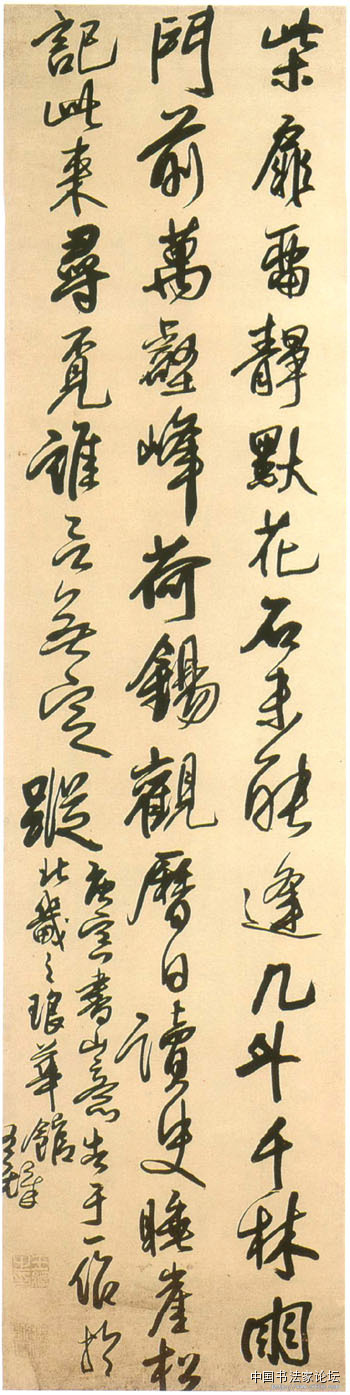 柴扉留靜默花石未能逢几外千林雨
門前萬壑峰荷錫觀曆日讀史睡崖松
記此來尋覓誰言無定蹤
庚寅書
北畿之琅華館王鐸
中国书法家论坛